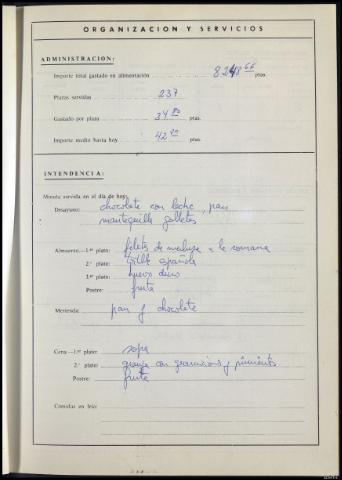 ORGANIZACION Y SERVICIOS
ADMINISTRACION:
Importe total gastado en alimentación 8248 66 ptas.
Plazas servidas 237
Gastado por plaza 34 80 ptas.
Importe medio hasta hoy 42 20 ptas.
INTENDENCIA:
Minuta servida en el día de hoy:
Desayuno: chocolate con leche, pan
mantequilla galletas
Almuerzo.—1.er plato: filetes de merluza a la romana
2.º plato: tortilla española
3.er plato: huevo duro
Postre: fruta
Merienda: pan y chocolate
Cena —1.er plato: sopa
2.º plato: con y pimiento
Postre: fruta
Comidas en frío: